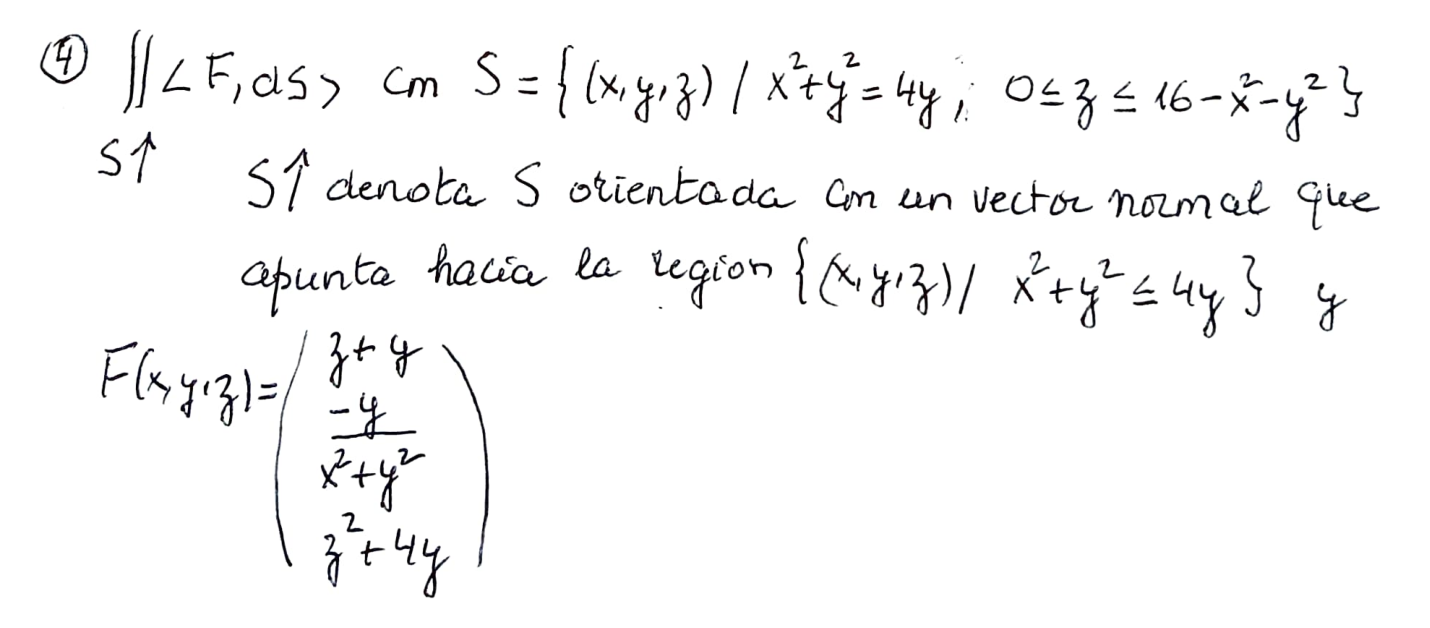 ④ ∬<F,ds> con S = { (x,y,z) / x²+y² = 4y ; 0 ≤ z ≤ 16-x²-y² }
S↑
S↑ denota S orientada con un vector normal que
apunta hacia la region { (x,y,z) / x²+y² ≤ 4y } y
F(x,y,z) = ( z+y
-y / x²+y²
z²+4y )